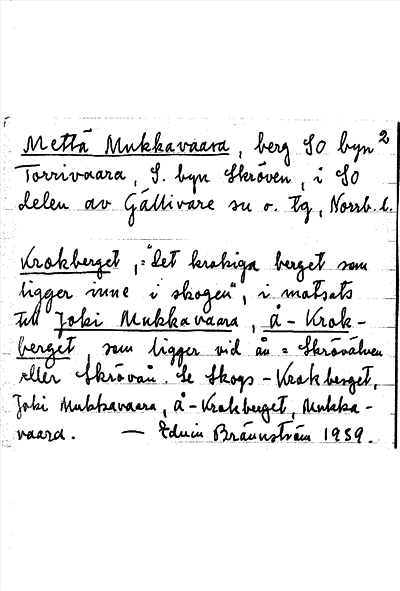 Mettä Mukkavaara, berg SO byn 2
Torrivaara, S. byn Skröven, i SO
delen av Gällivare sn o. tg, Norrb. l.
Krokberget, ="det krokiga berget som
ligger inne i skogen", i motsats
till Joki Mukkavaara, å-Krok-
berget, som ligger vid ån = Skrövälven
eller Skrövån. Se Skogs-Krokberget,
Joki Mukkavaara, å-Krokberget, Mukka-
vaara. — Edvin Brännström 1939.